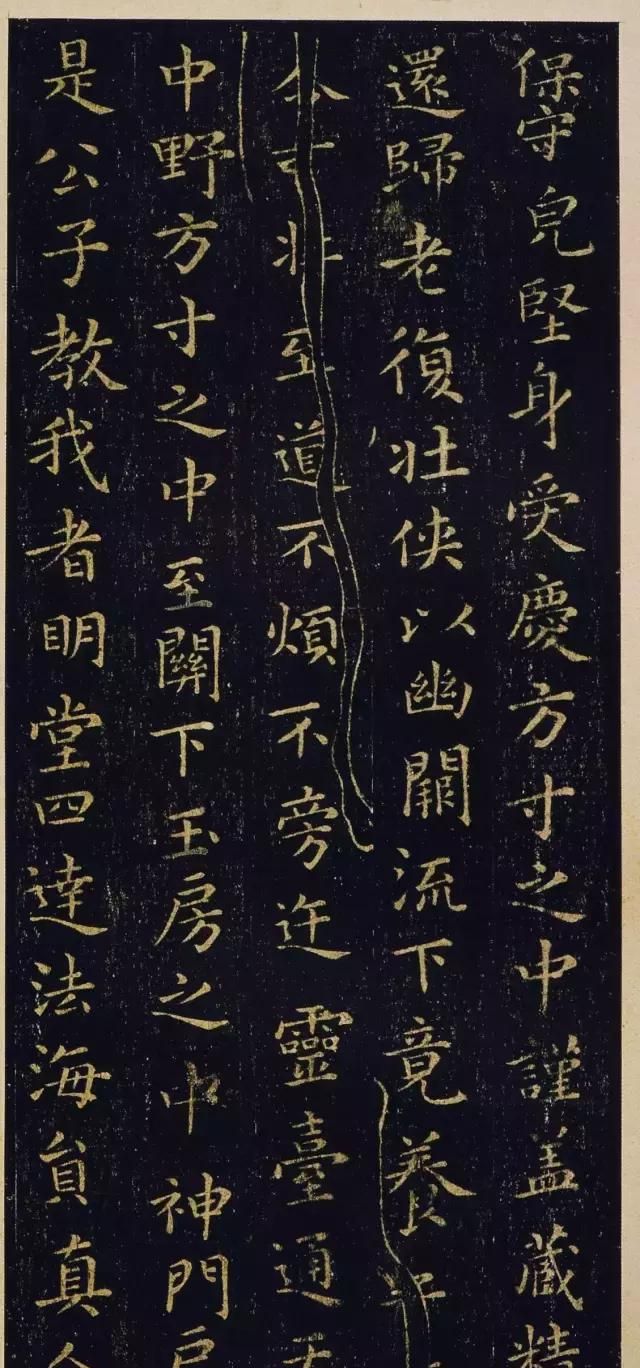 保守皃堅身受慶方寸之中謹盖藏精
還歸老復壯俠以幽闕流下竟養子
令可壯至道不煩不旁迕靈臺通天
中野方寸之中至關下玉房之中神門戶
是公子教我者明堂四達法海貟真人